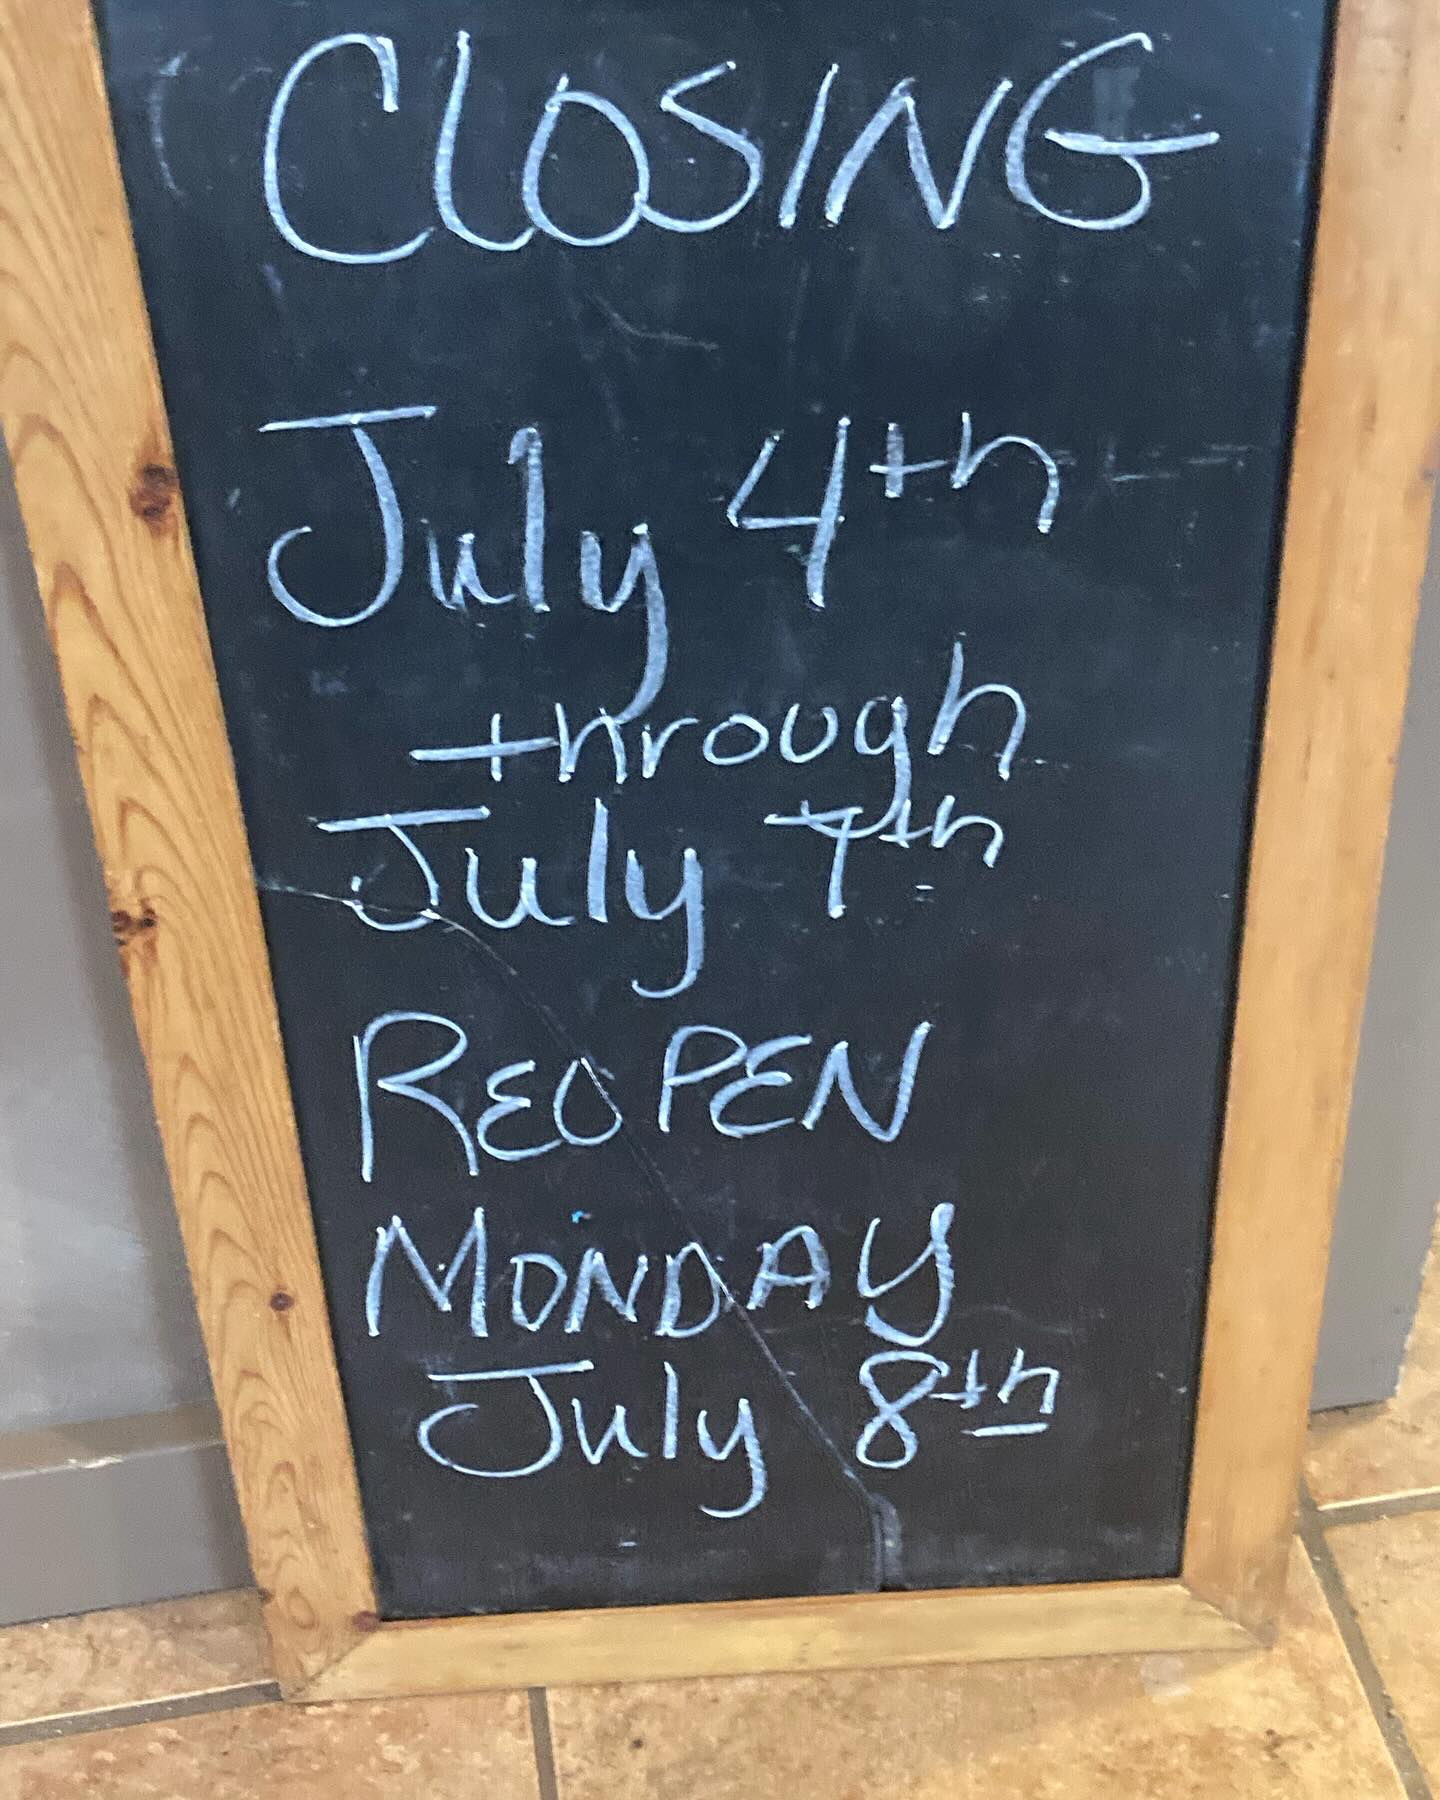 CLOSING
July 4th
through
July 7th
REOPEN
MONDAY
July 8th